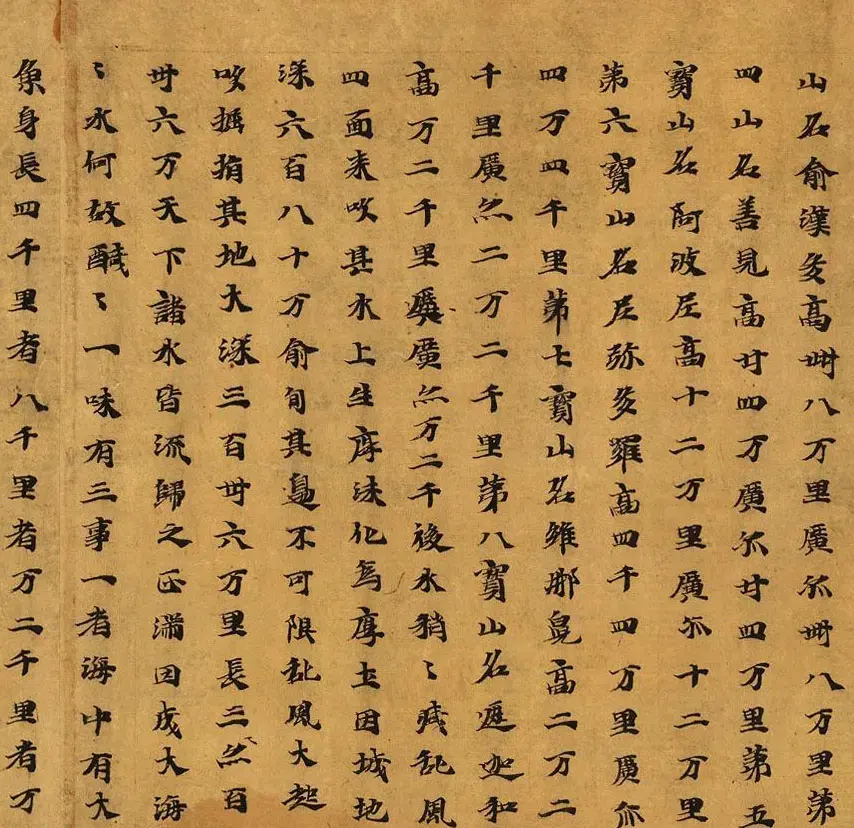 山名俞漢多高卌八万里廣尒卌八万里第
四山名善見高廿四万廣尒廿四万里第五
寶山名阿波尼高十二万里廣尒十二万里
第六寶山名尼弥多羅高四千四万里廣尒
四万四千里第七寶山名雖那鼻高二万二
千里廣亦二万二千里第八寶山名遮迦和
高万二千里廣亦万二千後水稍〻殘乱風
四面来吹其水上生摩沫化為摩土因城地
深六百八十万俞旬其邊不可限乱風大起
吹掘指其地大深三百卌六万里長三亦百
卌六万天下諸水皆流歸之正满因成大海
〻水何故醎〻一味有三事一者海中有大
魚身長四千里者八千里者万二千里者万